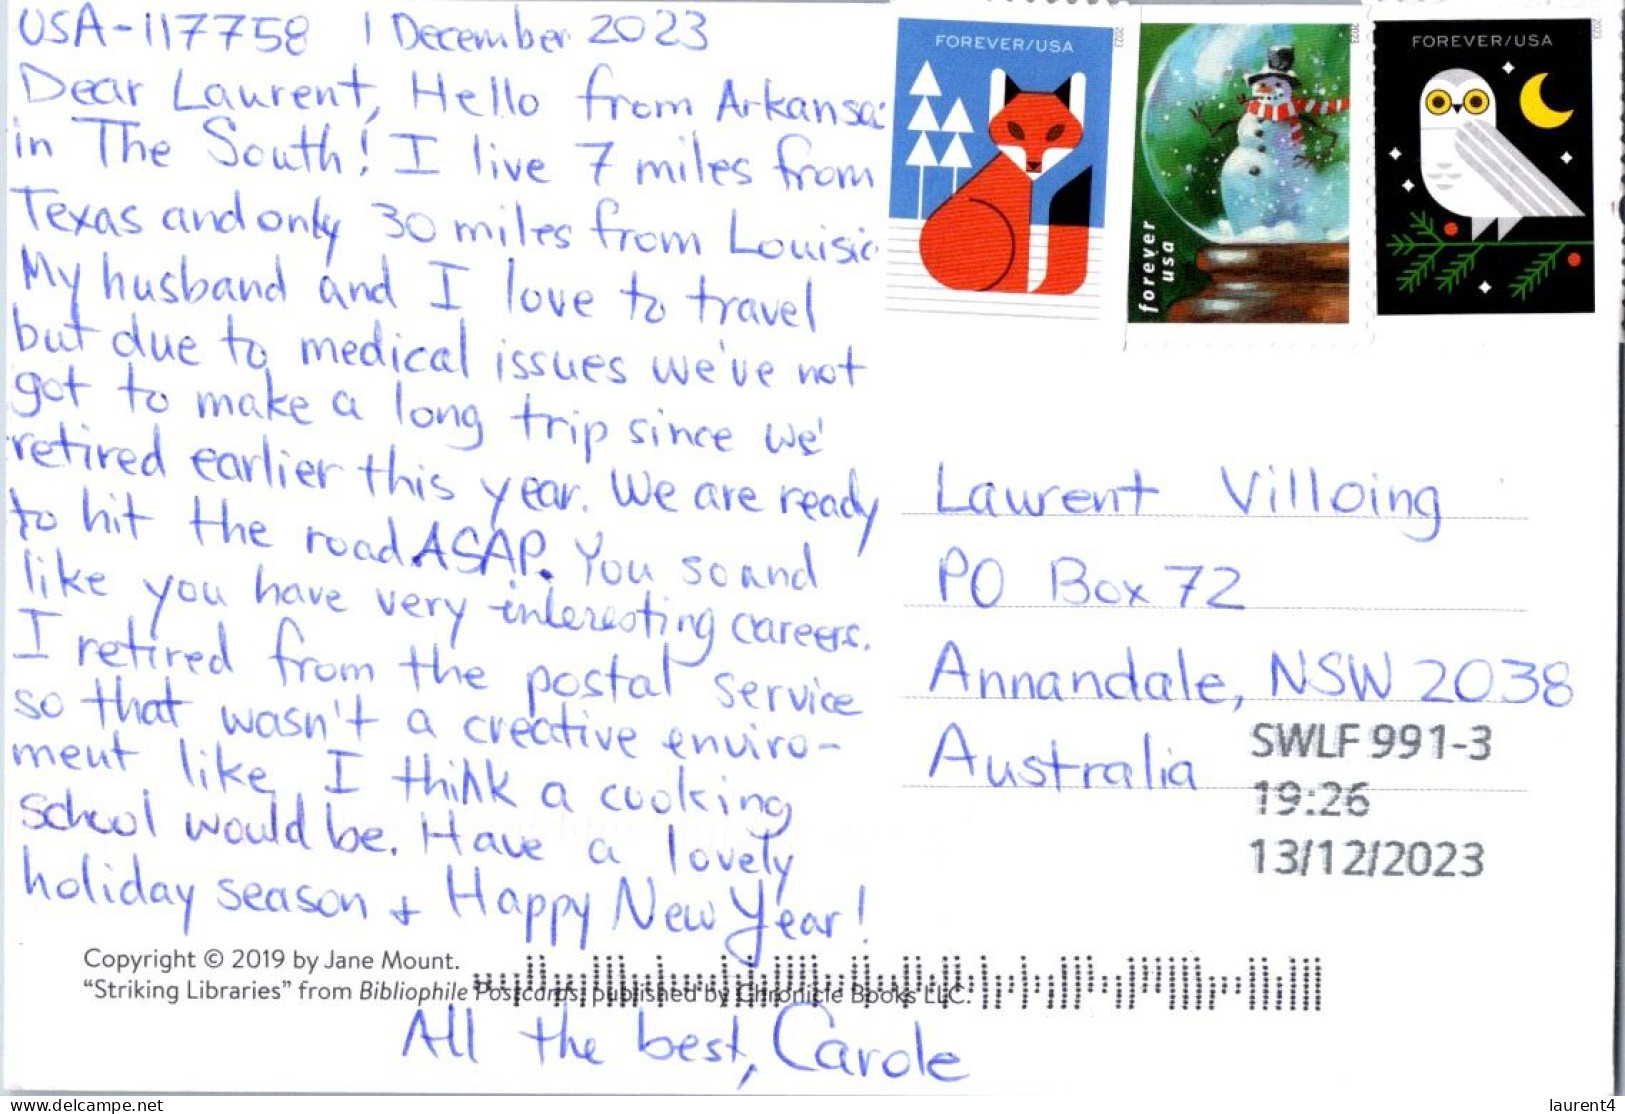 USA-117758 1 December 2023
Dear Laurent, Hello from Arkansa
in The South! I live 7 miles from
Texas and only 30 miles from Louisi
My husband and I love to travel
but due to medical issues we've not
got to make a long trip since we
retired earlier this year. We are ready
to hit the road ASAP. You so and
like you have very interesting careers.
I retired from the postal service
so that wasn't a creative enviro-
ment like I think a cooking
school would be. Have a lovely
holiday season + Happy New Year!
All the best, Carole
FOREVER/USA
2023
forever
usa
2023
FOREVER/USA
2023
Laurent Villoing
PO Box 72
Annandale, NSW 2038
Australia
SWLF 991-3
19:26
13/12/2023
Copyright © 2019 by Jane Mount.
“Striking Libraries” from Bibliophile Postcards, published by Chronicle Books LLC.
www.delcampe.net
laurent4